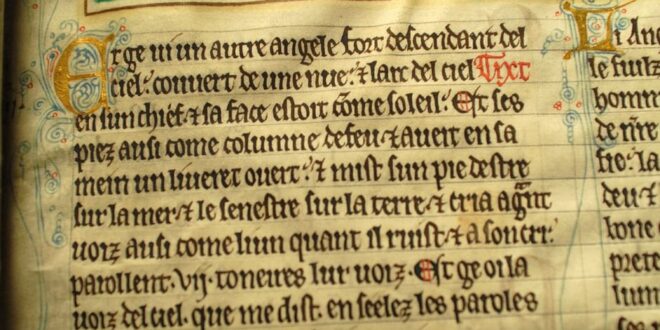 Et ge ui un autre angele fort descendant del
ciel. couuert de une nue. & larc del ciel Tixt
en sun chief. & sa face estoit cōme soleil. Et ses
piez ausi come columne de feu. & auert en sa
mein un liueret ouert. & mist sun pie destre
sur la mer. & le senestre sur la terre. & cria a
uoiz ausi come liun quant il ruist. & a son cri
parollent .vij. toneires lur uoiz. Et ge oi la
uoiz del ciel. que me dist. en seelez les paroles
Li Ang
le fuilz
homm
de nr̄e
fie. la
deu. &
bone
prete
lum